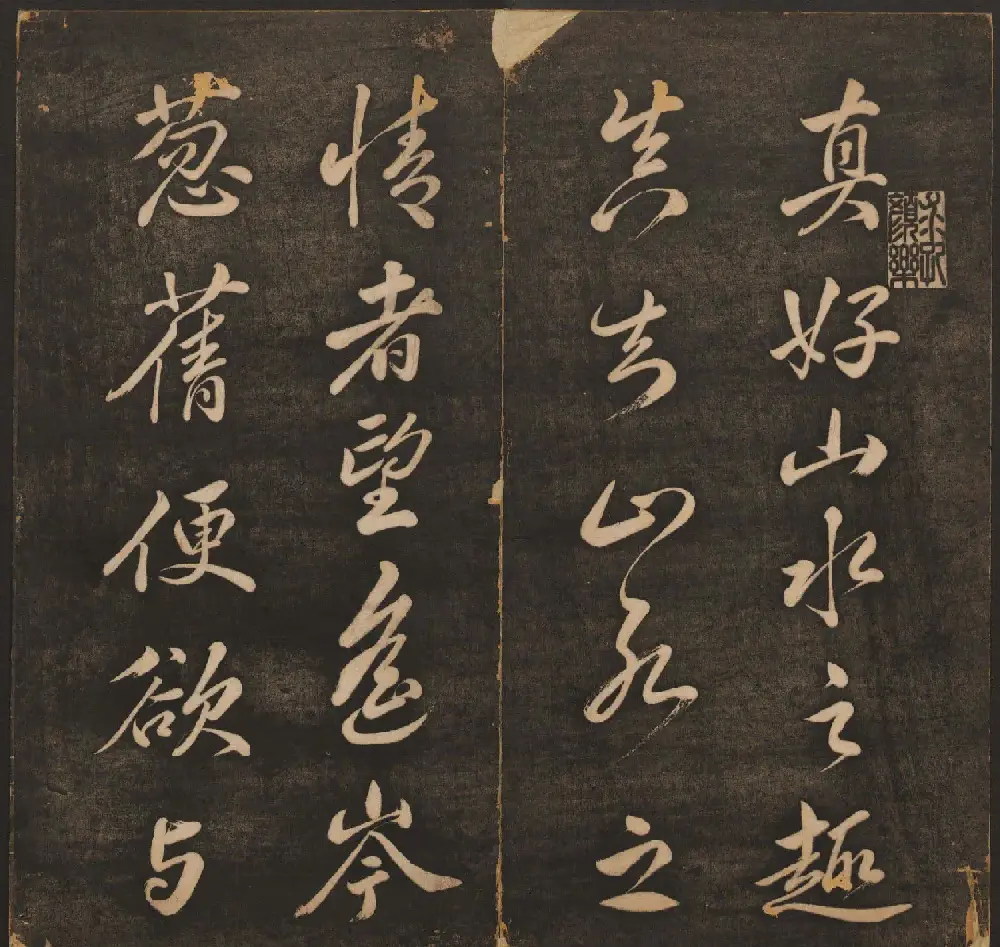 真好山水之趣
真知山水之
情者望危岑
葱蒨便欲与